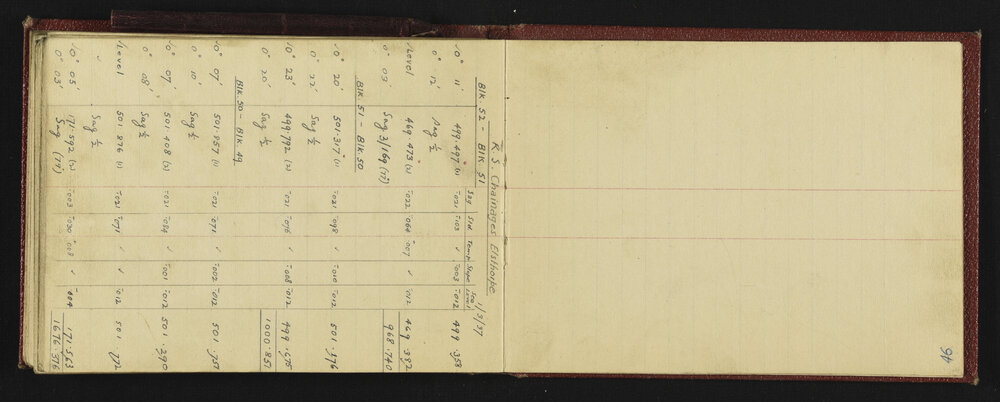 R.S. Chainages Elsthorpe 1/3/37
Sag Std Temp Slope Sea Level
Blk. 52 - Blk 51
0° 11' 499.497 (1) -.021 -.103 ✓ -.003 -.012 499.358
0° 12' Sag ½
Level 469.473 (2) -.022 -.064 +.007 ✓ -.012 469.382
0° 03' Sag 3/169 (17) 968.740
Blk. 51 - Blk. 50
0° 20' 501.317 (1) -.021 -.098 ✓ -.010 -.012 501.176
0° 22' Sag ½
0° 23' 499.792 (2) -.021 -.076 ✓ -.008 -.012 499.675
0° 20' Sag ½ 1000.851
Blk. 50 - Blk. 49
0° 07' 501.857 (1) -.021 -.071 ✓ -.002 -.012 501.751
0° 10' Sag ½
0° 07' 501.408 (2) -.021 -.084 ✓ -.001 -.012 501.290
0° 08' Sag ½
Level 501.876 (1) -.021 -.071 ✓ ✓ -.012 501.772
" Sag ½
0° 05' 171.592 (2) -.003 -.030 +.008 ✓ -.004 171.563
0° 03' Sag (19) 1676.376
46